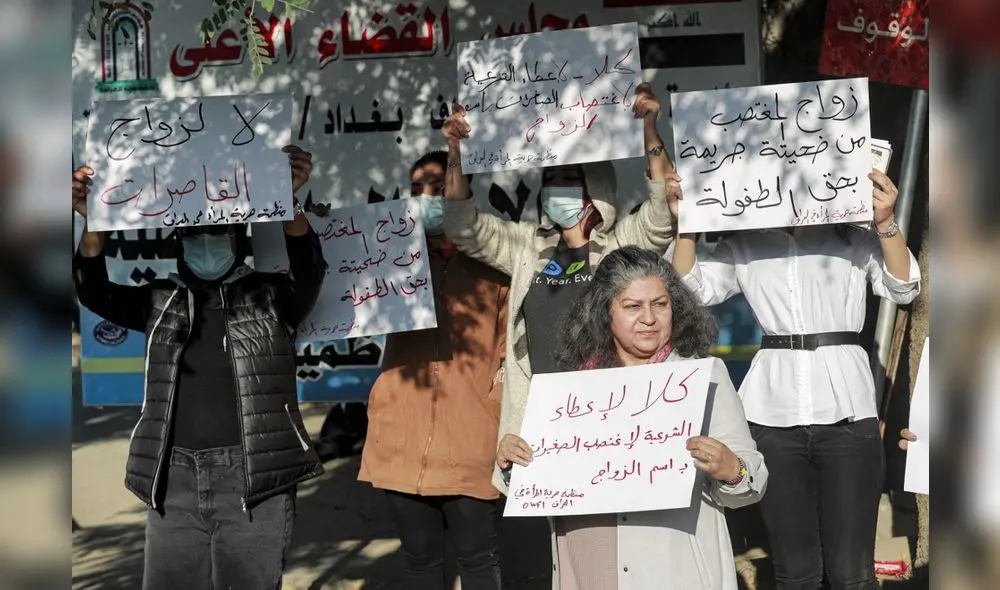 مجلس القضاء الأعلى
الله اكبر
الوقوف
بغداد /
لا لزواج
القاصرات
منظمة حرية المرأة في العراق
كلا لاعطاء الشرعية
الصغيرات
الزواج
منظمة حرية المرأة في العراق
زواج المغتصب
من ضحيتة جريمة
بحق الطفولة
منظمة حرية المرأة في العراق
زواج المغتصب
من ضحيتة
بحق الطفولة
منظمة حرية المرأة في
كلا لإعطاء
الشرعية لإغتصب الصغيرات
بأسم الزواج
منظمة حرية المرأة في
العراق OWFI